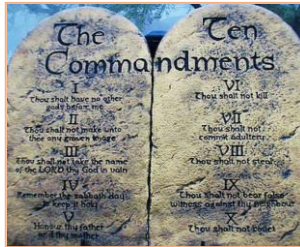 The Ten
Commandments
I
Thou shalt have no other
gods before me
II
Thou shalt not make unto
thee any graven image
III
Thou shalt not take the name
of the LORD thy God in vain
IV
Remember the sabbath day
to keep it holy
Honour thy father
and thy mother
VI
Thou shalt not kill
VII
Thou shalt not
commit adultery
VIII
Thou shalt not steal
IX
Thou shalt not bear false
witness against thy neighbour
X
Thou shalt not covet